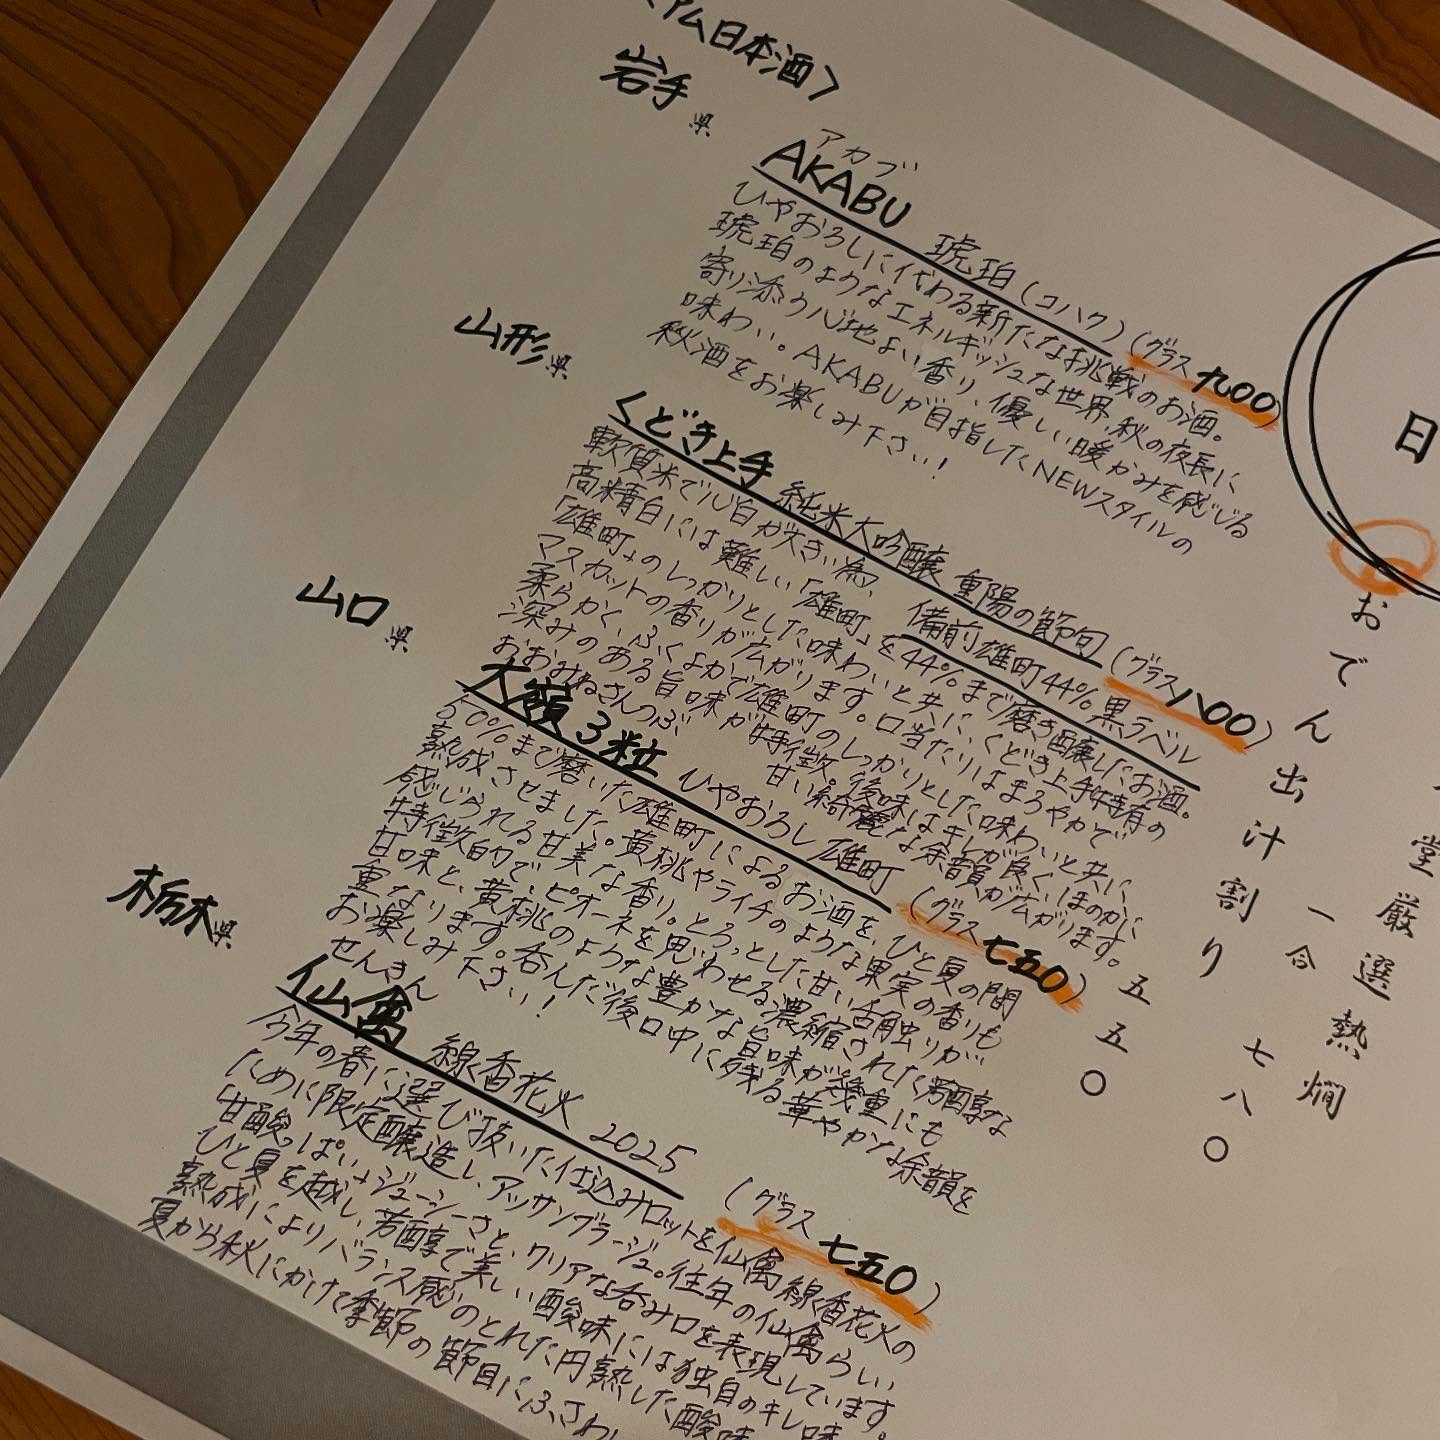 アム日本酒〉
岩手県
アカブ
AKABU 琥珀(コハク)(グラス九〇〇)
ひやおろしに代わる新たな挑戦のお酒。
琥珀のようなエネルギッシュな世界、秋の夜長に
寄り添う心地よい香り、優しい暖かみを感じる
味わい。AKABUが目指したNEWスタイルの
秋酒をお楽しみ下さい!
山形県
くどき上手 純米大吟醸 重陽の節句(グラス八〇〇)
備前雄町44%黒ラベル
軟質米で心白が大きい為、
高精白には難しい「雄町」を44%まで磨き醸したお酒。
「雄町」のしっかりとした味わいと共に、くどき上手特有の
マスカットの香りが広がります。口当たりはまろやかで
柔らかく、ふくよかで雄町のしっかりとした味わいと共に
深みのある旨味が特徴。後味はキレが良く、ほのかに
甘い綺麗な余韻が広がります。
山口県
おおみねさんつぶ
大嶺3粒 ひやおろし 雄町(グラス七五〇)
50%まで磨いた雄町によるお酒を、ひと夏の間
熟成させました。黄桃やライチのような果実の香りも
感じられる甘美な香り。とろっとした甘い舌触りが
特徴的で、ピオーネを思わせる濃縮された芳醇な
甘味と、黄桃のような豊かな旨味が幾重にも
重なります。呑んだ後口中に残る華やかな余韻を
お楽しみ下さい!
栃木県
せんきん
仙禽 線香花火 2025 (グラス七五〇)
今年の春に選び抜いた仕込みロットを仙禽線香花火の
ために限定醸造し、アッサンブラージュ。往年の仙禽らしい
「甘酸っぱい」ジューシーさと、クリアな呑み口を表現しています。
ひと夏を越し、芳醇で美しい酸味には独自のキレ味
熟成によりバランス感のとれた円熟した酸味
夏から秋にかけて季節の節目にふさわ
日
堂厳選熱燗
一合 七八〇
おでん出汁割り 五五〇